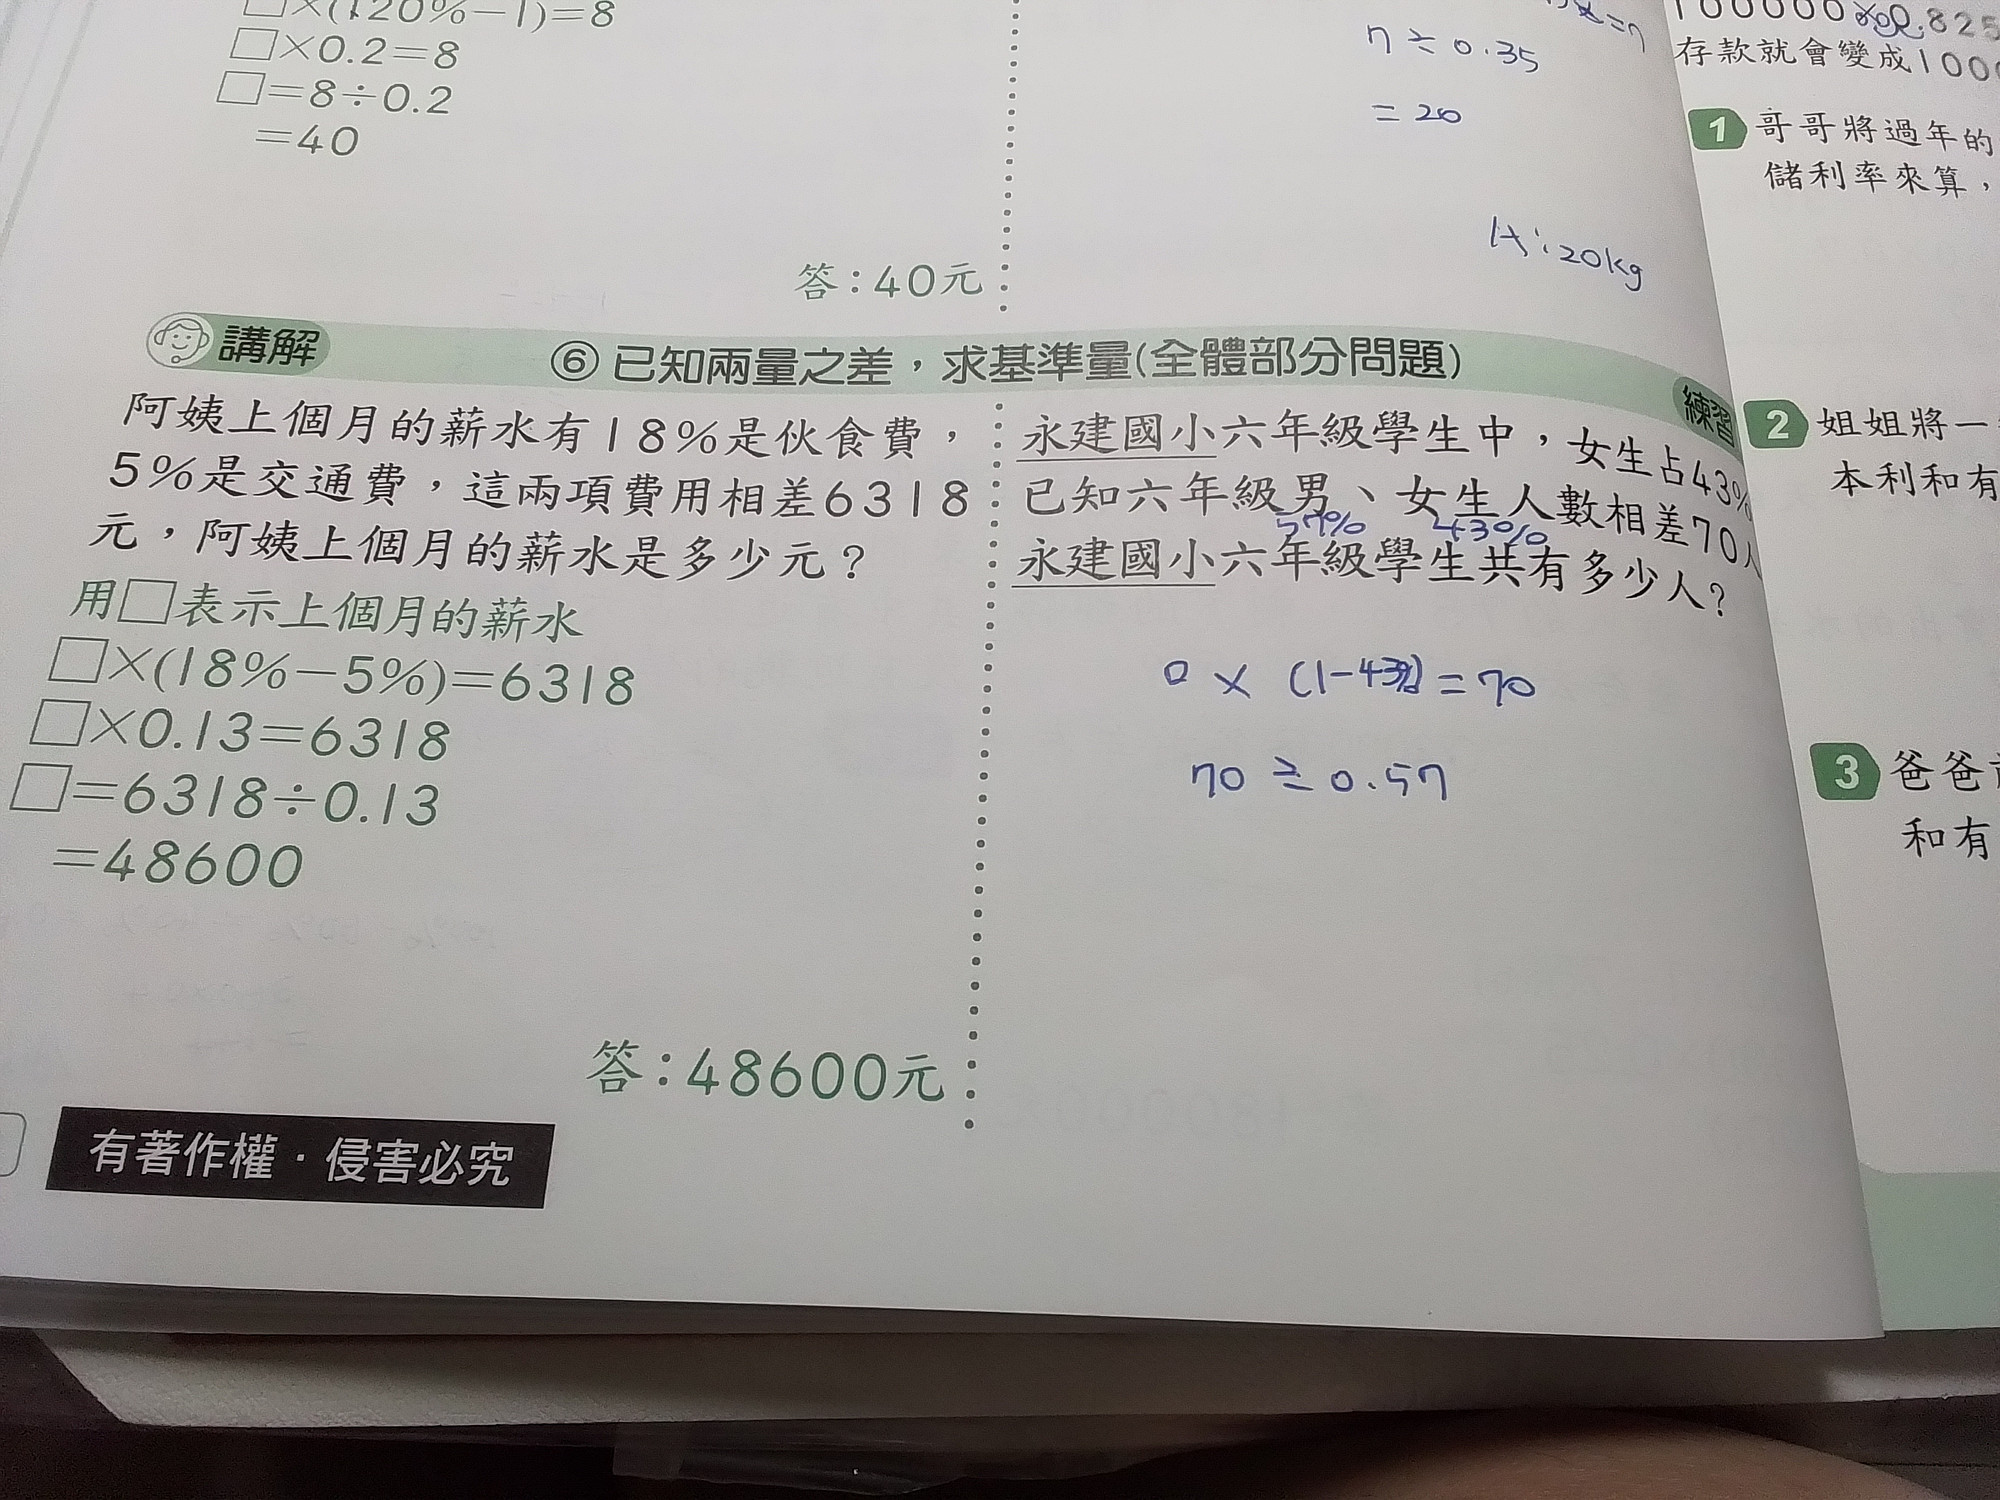 □×(120%-1)=8
□×0.2=8
□=8÷0.2
=40
答:40元
7÷0.35
=20
A:20kg
講解
⑥已知兩量之差,求基準量(全體部分問題)
練習
阿姨上個月的薪水有18%是伙食費,
5%是交通費,這兩項費用相差6318
元,阿姨上個月的薪水是多少元?
用□表示上個月的薪水
□×(18%-5%)=6318
□×0.13=6318
□=6318÷0.13
=48600
答:48600元
永建國小六年級學生中,女生占43%
已知六年級男、女生人數相差70人
57% 43%
永建國小六年級學生共有多少人?
□×(1-43%)=70
70÷0.57
有著作權·侵害必究
存款就會變成1000
1 哥哥將過年的
儲利率來算,
2 姐姐將一
本利和有
3 爸爸
和有